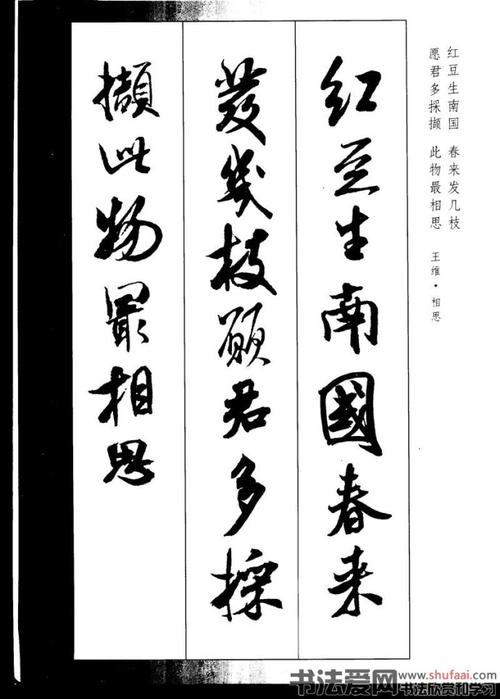 红豆生南国 春来发几枝
愿君多採撷 此物最相思 王维·相思
红豆生南國春来
發幾枝願君多採
擷此物最相思
www.shufaai.com
书法爱网
书法欣赏和学习